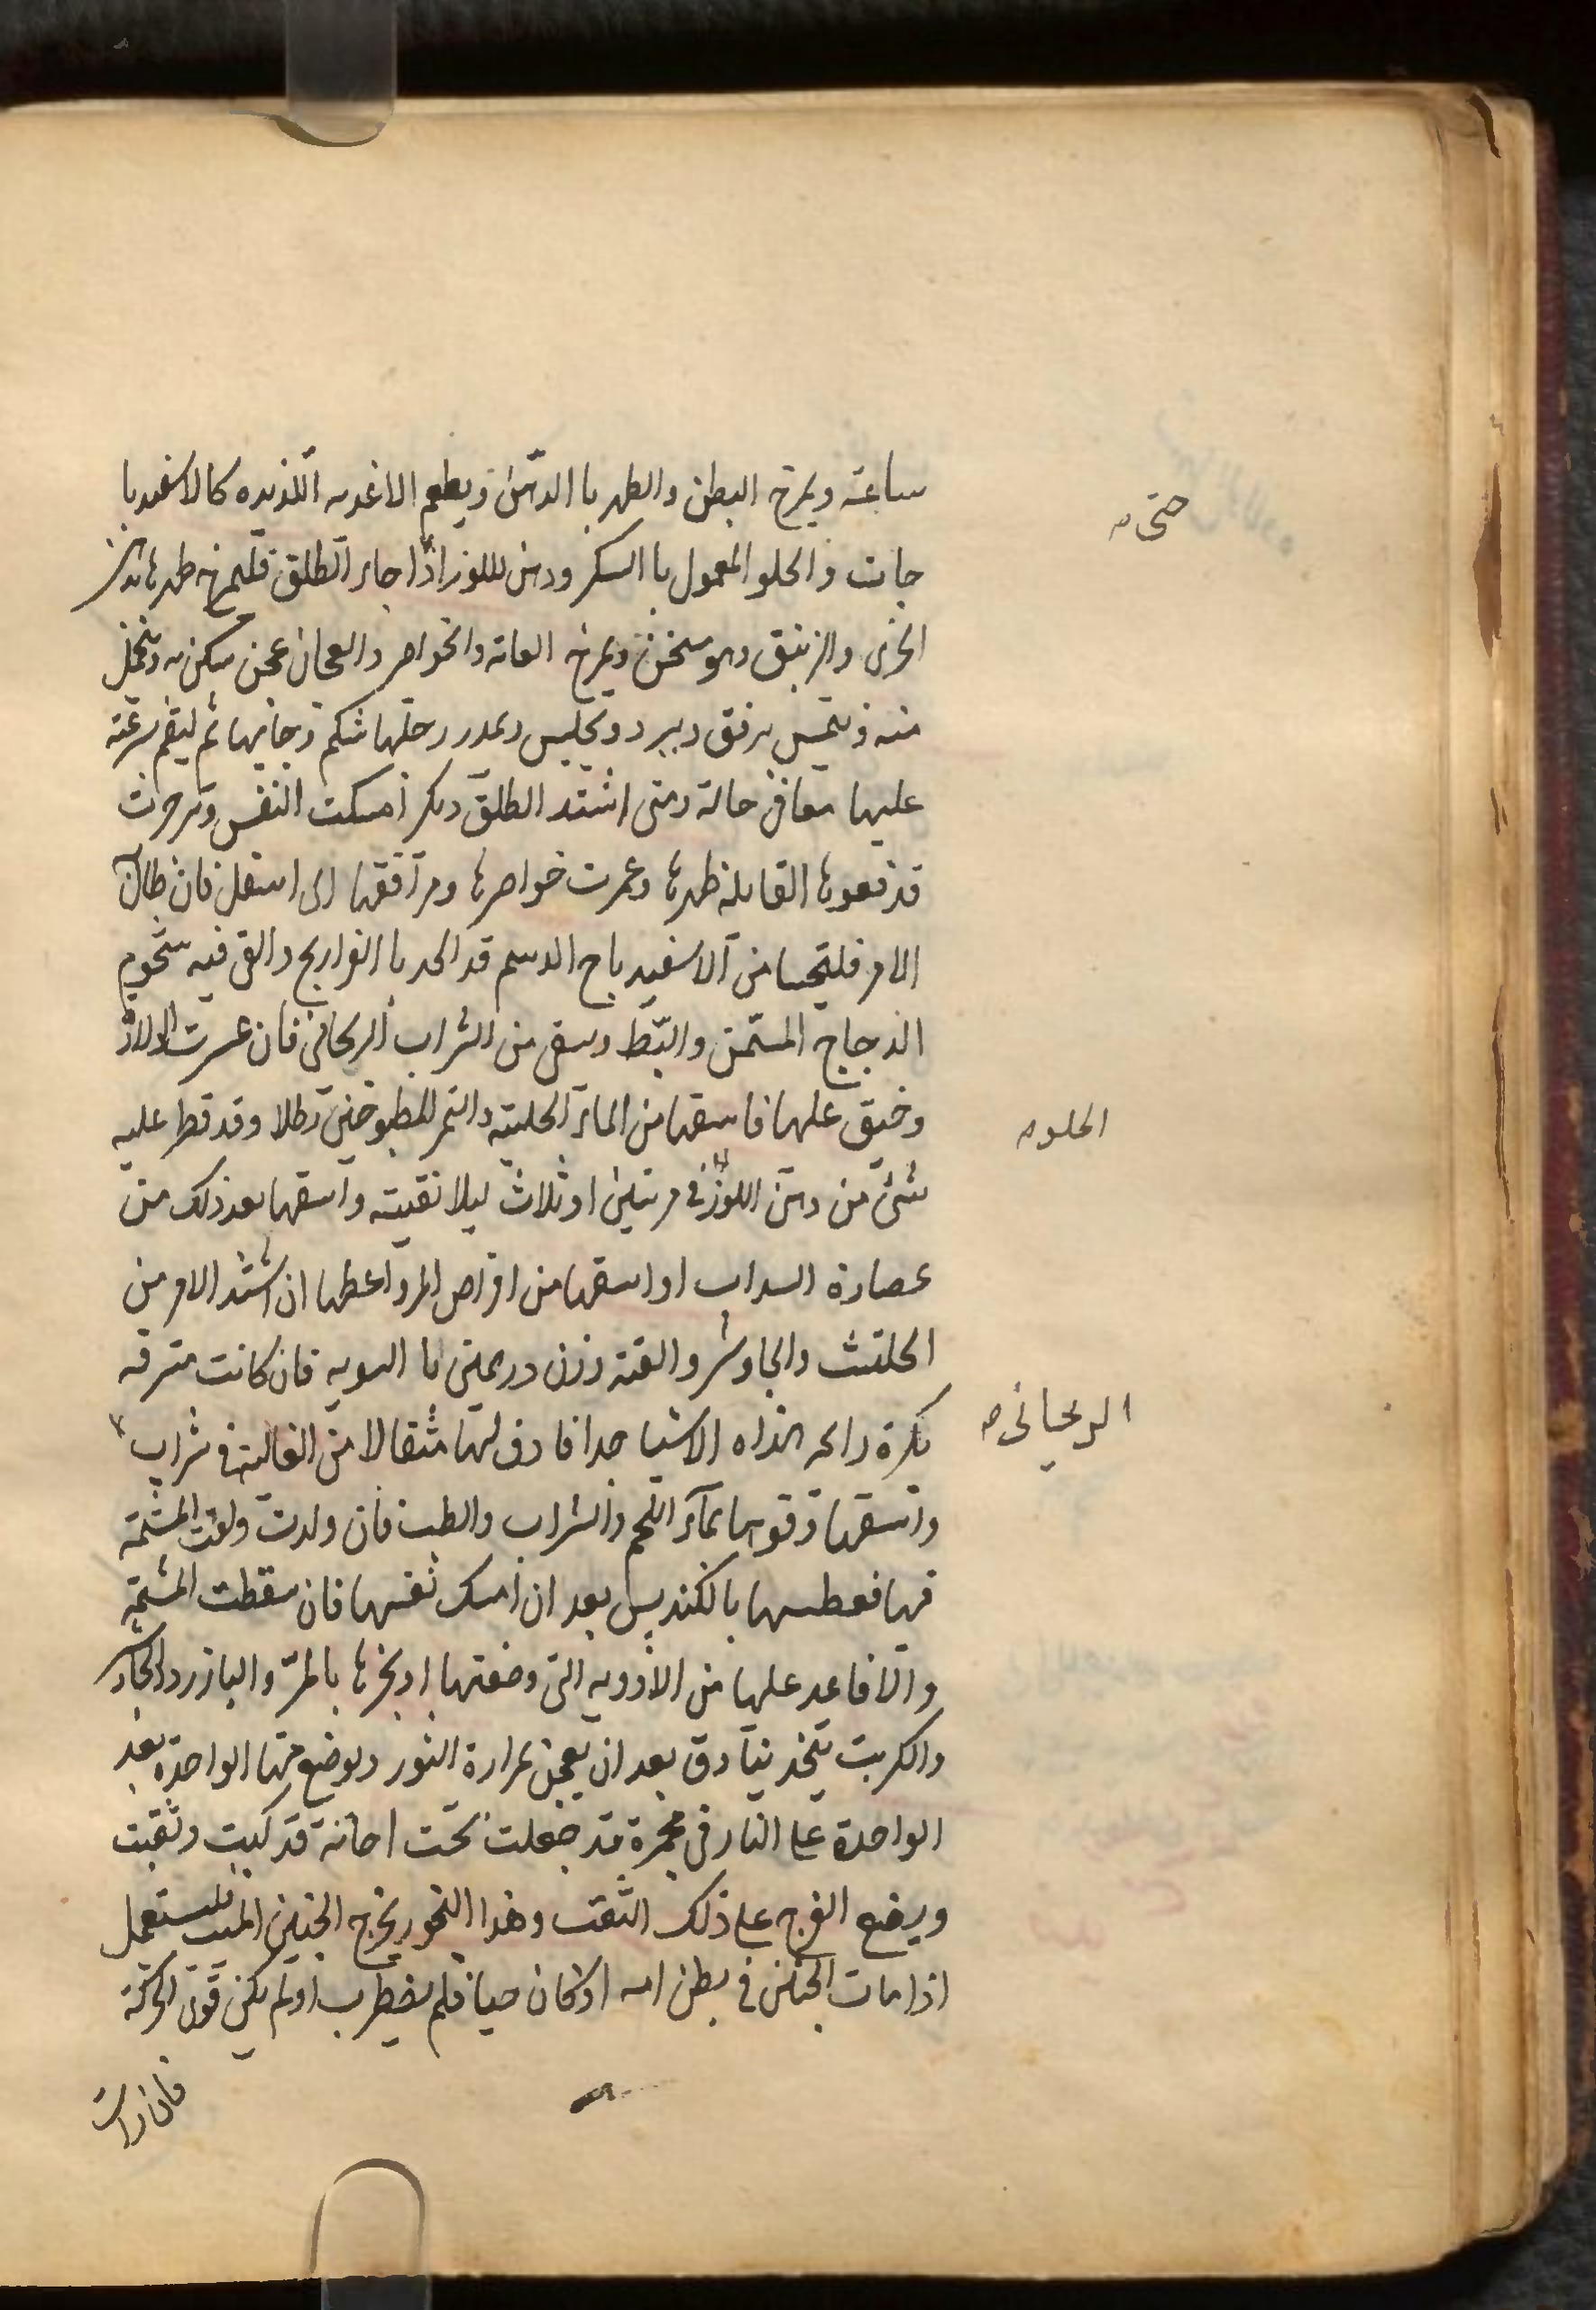 ساعته ويمرخ البطن والظهر با الدهن ويطعم الاغديه اللذيذه كالاسفيدبا
حتى
جات والحلو المعمول با السكر ودهن اللوز اذا جاء الطلق فليمرخ ظهرها بدهن
الخرى والزنبق وهو مسخن ويمرخ العانه والخواصر والعجان
منه برفق ويجلس ويمدد رجليها ثم ليقم سرعته
عليها حالة ومتى اشتد الطلق امسكت النفس وتزحرت
قد فعوها القابلة ظهرها وغمرت خواصرها ومرافقها الى اسفل فان طال
الامر فليتحسا من الاسفيدباج الدسم قد الحد با الفراريج والقى فيه شحوم
الدجاج المسمن والبط وسقى من الشراب الريحانى فان عسرت الولاد
وضيق عليها فاسقها من الماء الحلبته والتمر المطبوخين رطلا وقد قطر عليه
الحلو
شئ من دهن اللوز فى مرتين او ثلاث ليلا تقيته واسقها بعد ذلك من
عصارة السداب او اسقها من اقراص المر واعطها ان اشتد الامر من
الحلتث والجاوشر والقنه وزن درهمين با فان كانت مترفه
الريحانى
تكره رائحه هذاه الاشيا جدا فادف لها مثقالا من الغالية فى شراب
واسقها وقوها بماء اللحم والشراب والطيب فان ولدت وبقيت المشيمة
فيها فعطسها بالكندس بعد ان امسك نفسها فان سقطت المشيمة
والا فاعد عليها من الادويه التى وضعتها او بخرها بالمر والبازرد والجاوشر
والكربت يتخذ بنادق بعد ان يعجن بمرارة الثور ويوضع منها الواحدة بعد
الواحدة على النار فى مجمرة قد جعلت تحت اجانة قد كبت وثقبت
ويضع الفرج على ذلك الثقب وهذا البخور يخرج الجنين الميت يستعمل
اذا مات الجنين فى بطن امه او كان حيا فلم يضطرب او لم يكن قوى الحركة
فان رات